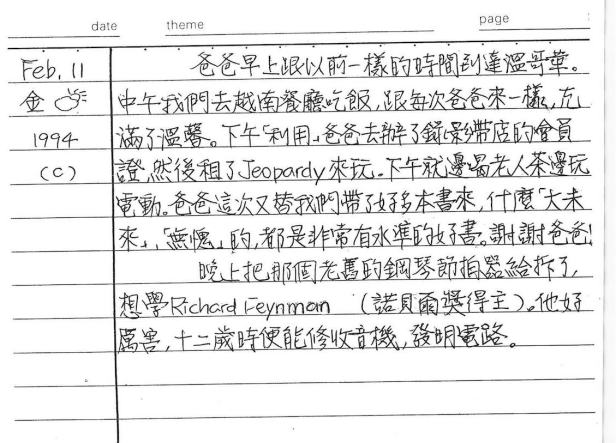 date theme page
Feb. 11 爸爸早上跟以前一樣的時間到達溫哥華。
金 中午我們去越南餐廳吃飯,跟每次爸爸來一樣,充
1994 滿了溫馨。下午「利用」爸爸去辦了錄影帶店的會員
(C) 證,然後租了Jeopardy來玩。下午就邊喝老人茶邊玩
電動。爸爸這次又替我們帶了好多本書來,什麼「大未
來」、「無愧」的,都是非常有水準的好書。謝謝爸爸!
晚上把那個老舊的鋼琴節拍器給拆了,
想學Richard Feynman (諾貝爾獎得主)。他好
厲害,十二歲時便能修收音機,發明電路。